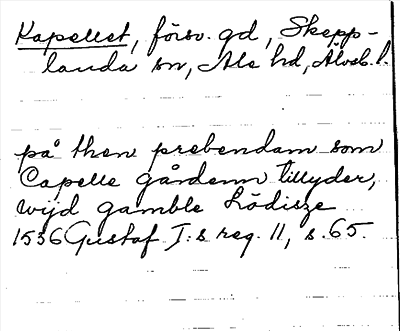 Kapellet, försv. gd, Skepp-
landa sn, Ale hd, Älvsb. l.
på then prebendam som
Capelle gårdenn tillyder,
wijd gamble Lödisze
1536 Gustaf I:s reg. 11, s. 65.